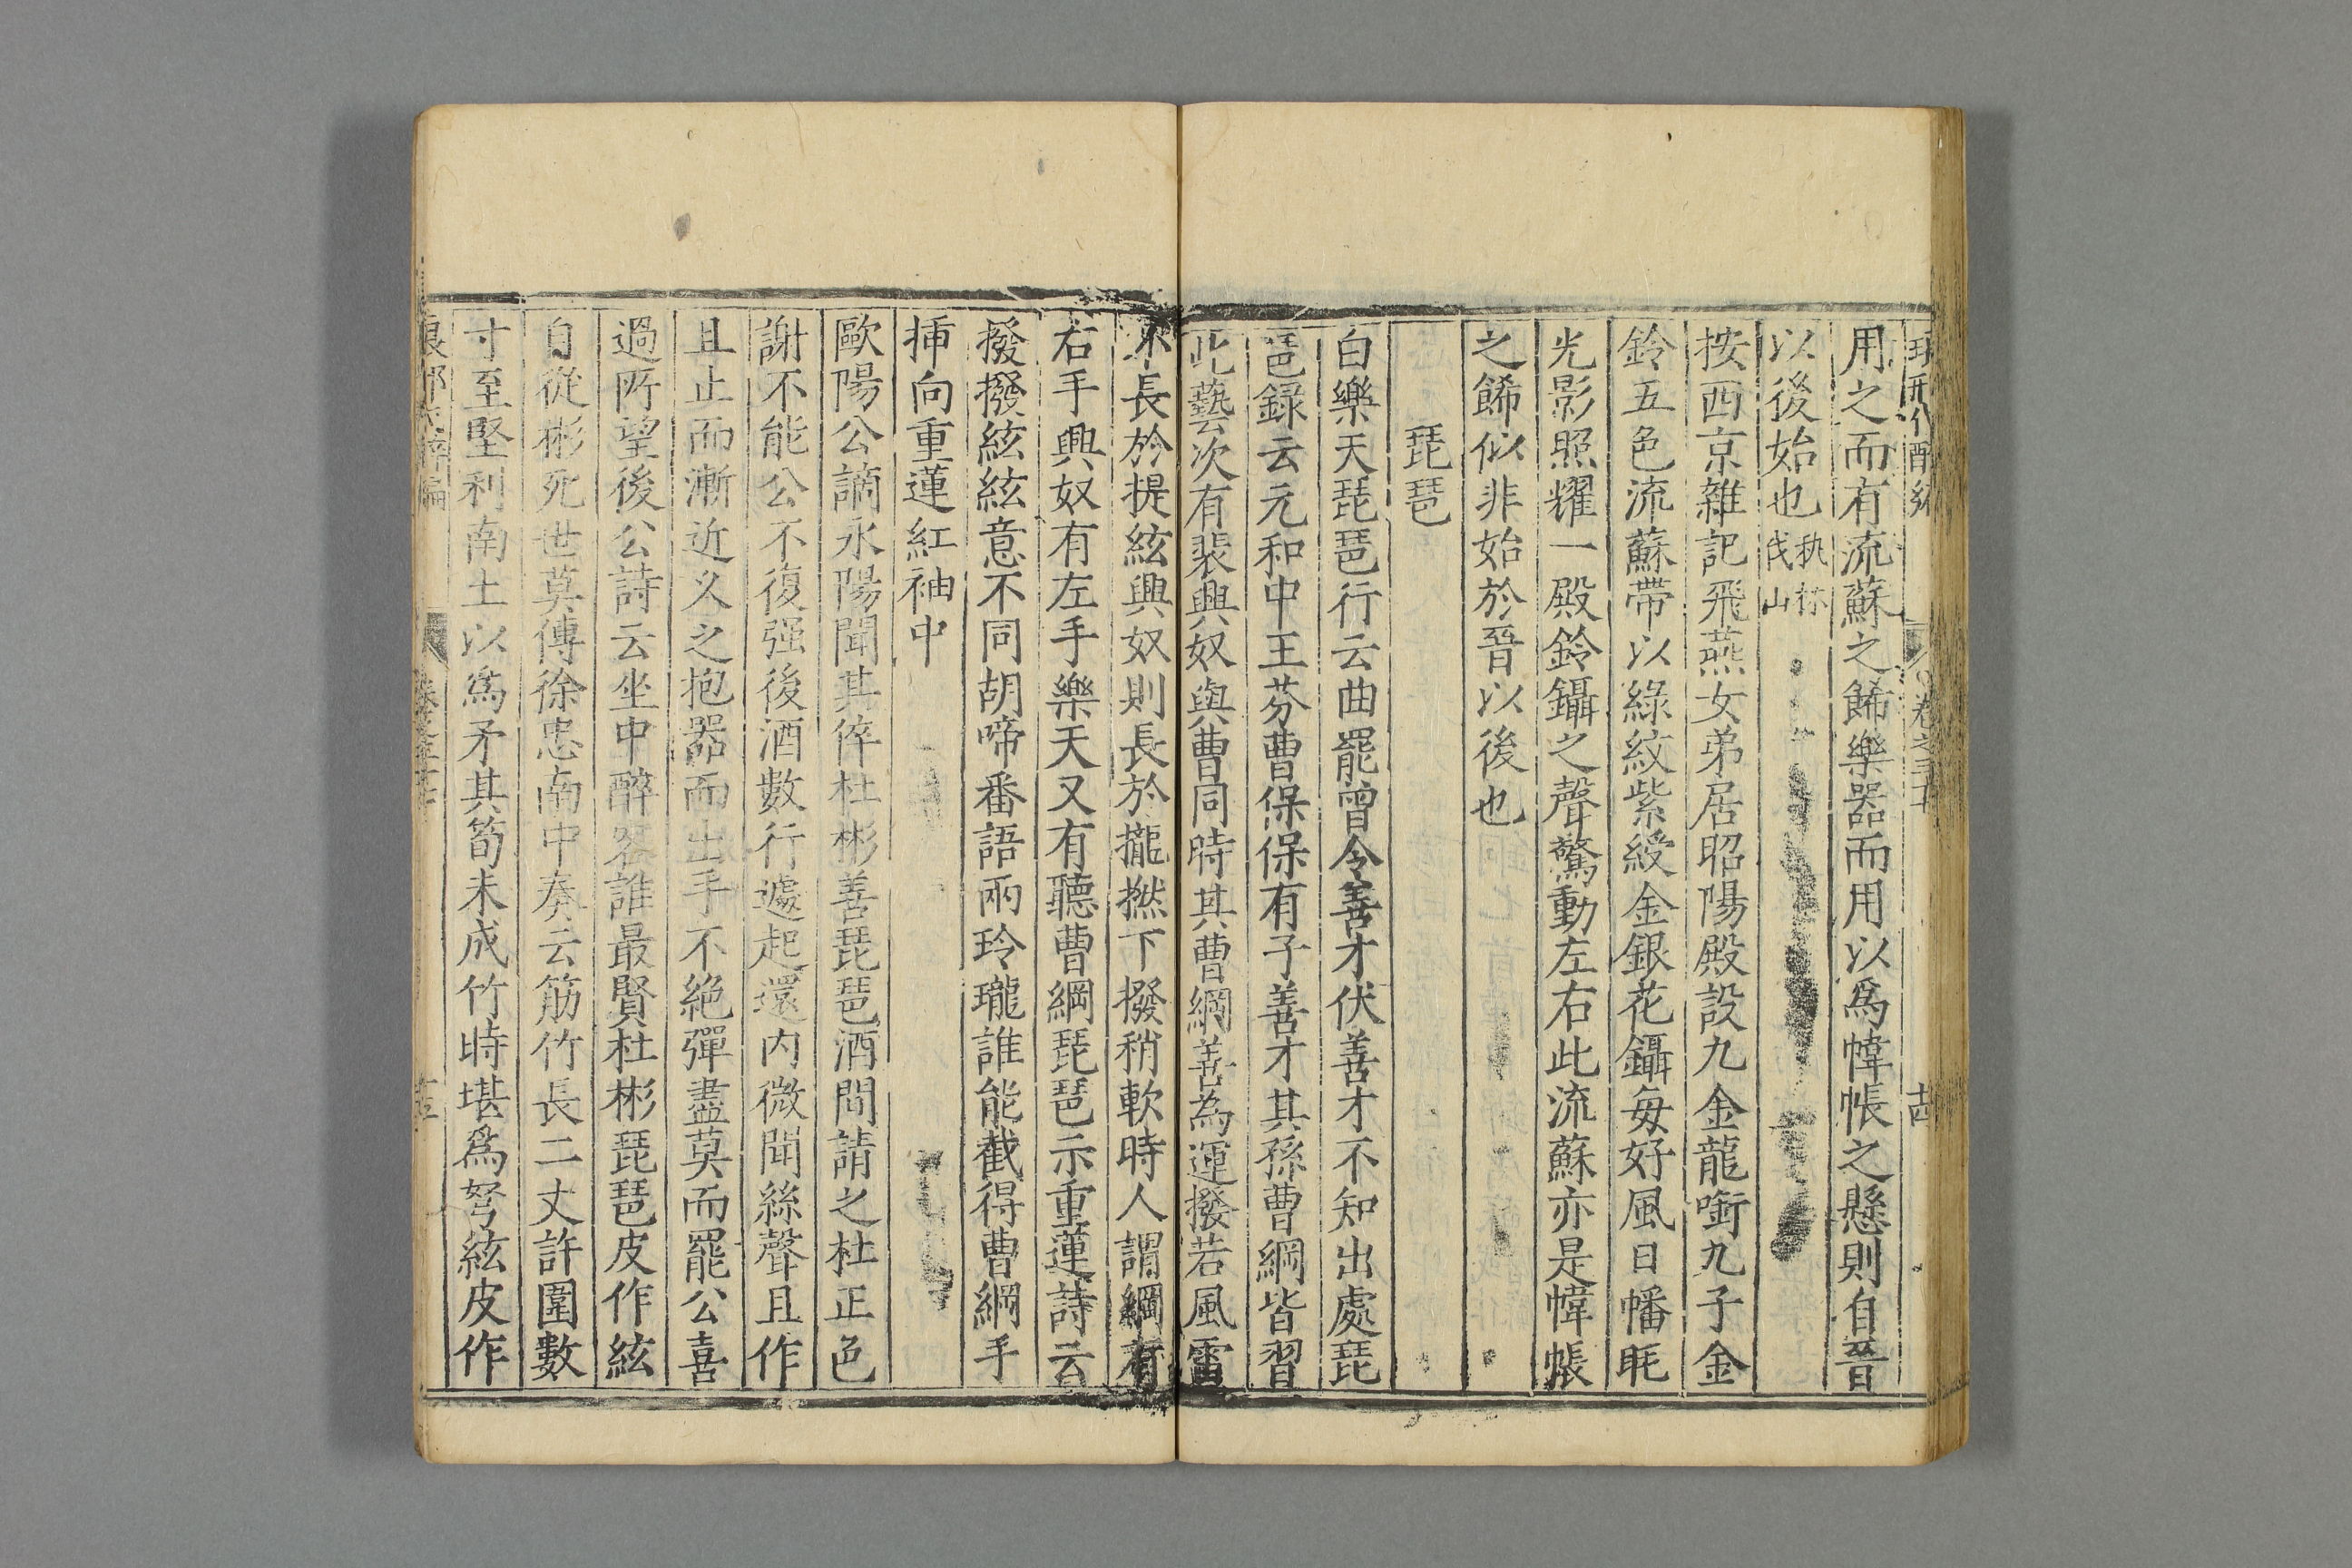 用之而有流蘇之餙樂器而用以爲幃帳之懸則自晉
以後始也秇林
伐山
按西京雜記飛燕女弟居昭陽殿設九金龍啣九子金
鈴五色流蘇帶以綠紋紫綬金銀花鑷每好風日幡眊
光影照耀一殿鈴鑷之聲驚動左右此流蘇亦是幃帳
之餙似非始於晉以後也
琵琶
白樂天琵琶行云曲罷曾令善才伏善才不知出處琵
琶録云元和中王芬曹保保有子善才其孫曹綱皆習
此藝次有裴興奴與曹同時其曹綱善為運撥若風雷
不長於提絃興奴則長於攏撚下撥稍軟時人謂綱有
右手興奴有左手樂天又有聽曹綱琵琶示重蓮詩云
撥撥絃絃意不同胡啼番語兩玲瓏誰能截得曹綱手
挿向重蓮紅袖中
歐陽公謫永陽聞其倅杜彬善琵琶酒間請之杜正色
謝不能公不復强後酒數行遽起還内微聞絲聲且作
且止而漸近久之抱器而出手不絶彈盡莫而罷公喜
過所望後公詩云坐中醉客誰最賢杜彬琵琶皮作絃
自從彬死世莫傳徐忠南中奏云筋竹長二丈許圍數
寸至堅利南土以爲矛其筍未成竹時堪爲弩絃皮作